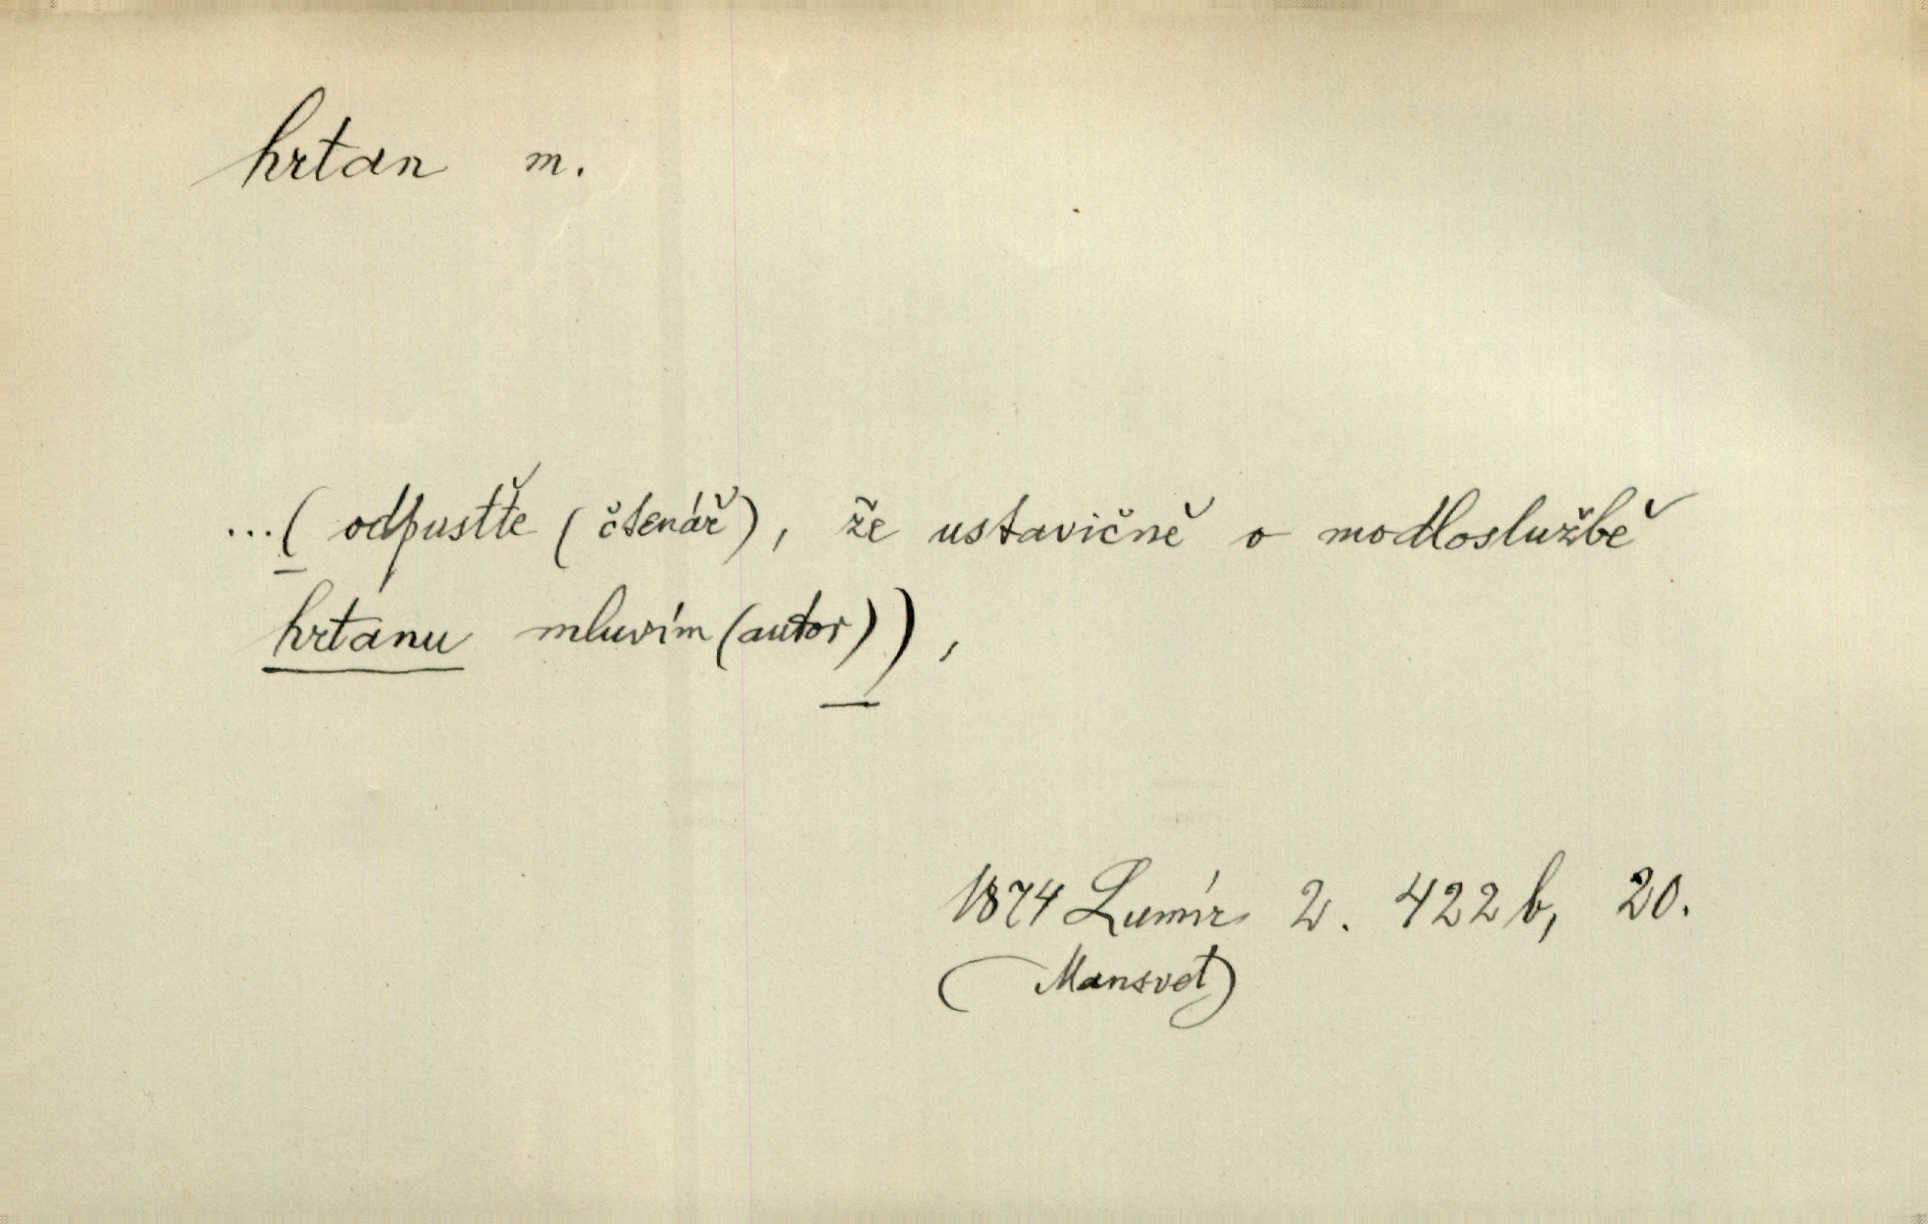 hrtan m.
...( odpusťte (čtenář), že ustavičně o modloslužbě
hrtanu mluvím (autor)),
1874 Lumír 2. 422 b, 20.
(Mansvet)